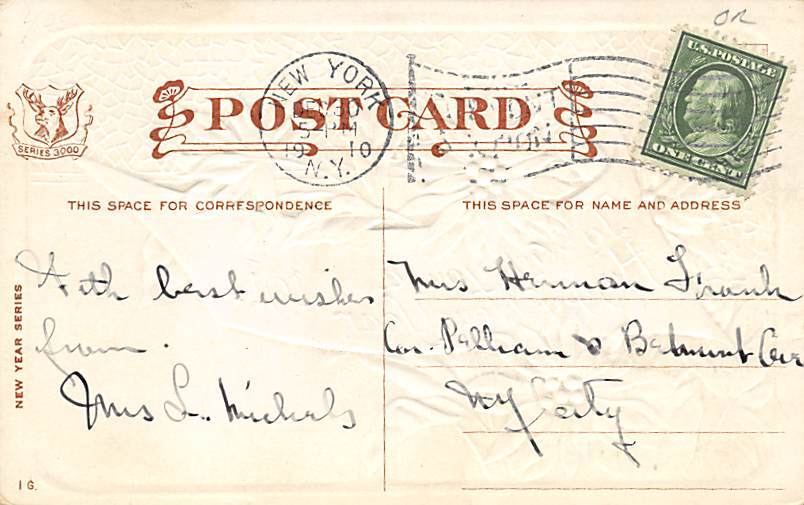 OR
U.S. POSTAGE
ONE CENT
NEW YORK
N.Y.
19 10
POST CARD
SERIES 3000
THIS SPACE FOR CORRESPONDENCE
THIS SPACE FOR NAME AND ADDRESS
NEW YEAR SERIES
With best wishes
from.
Mrs L. Michels
Mrs Herman Frank
Cor. Pelham & Belmont Ave
NY City
1 G.